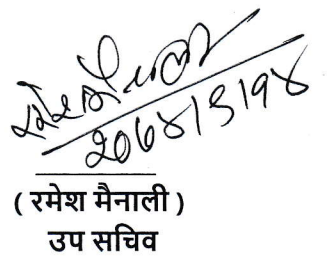 २०७४।९।१४
( रमेश मैनाली )
उप सचिव